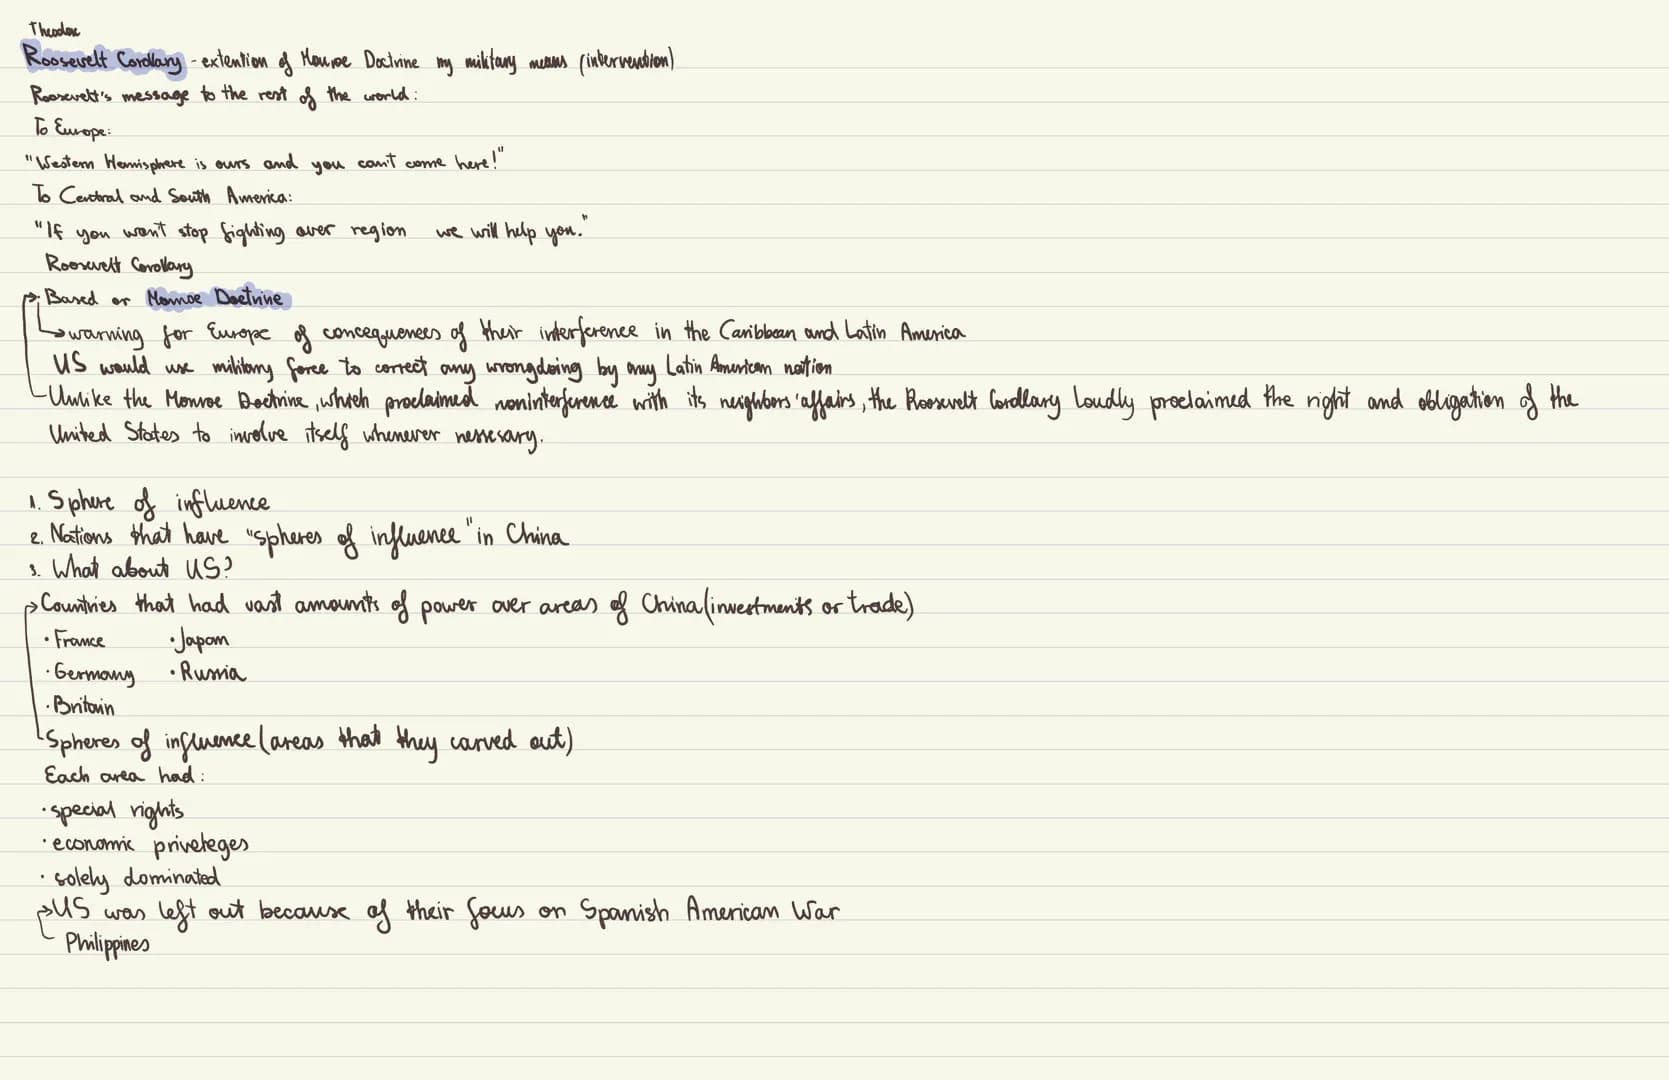 Theodore
Roosevelt Corollary - extention of Monroe Doctrine my military means (intervention)
Roosevelt's message to the rest of the world:
To Europe:
"Western Hemisphere is ours and you can't come here!"
To Central and South America:
"If you won't stop fighting over region we will help you."
Roosevelt Corollary
Based or Monroe Doctrine
warning for Europe of concequences of their interference in the Caribbean and Latin America
US would use military force to correct any wrongdoing by any Latin American nation
Unlike the Monroe Doctrine, which proclaimed noninterference with its neighbors' affairs, the Roosevelt Corollary loudly proclaimed the right and obligation of the
United States to involve itself whenever nessesary.
1. Sphere of influence
2. Nations that have "spheres of influence" in China
3. What about US?
Countries that had vast amounts of power over areas of China (investments or trade)
· France · Japan
· Germany · Russia
· Britain
Spheres of influence (areas that they carved out)
Each area had:
· special rights
· economic priveleges
· solely dominated
US was left out because of their focus on Spanish American War
Philippines